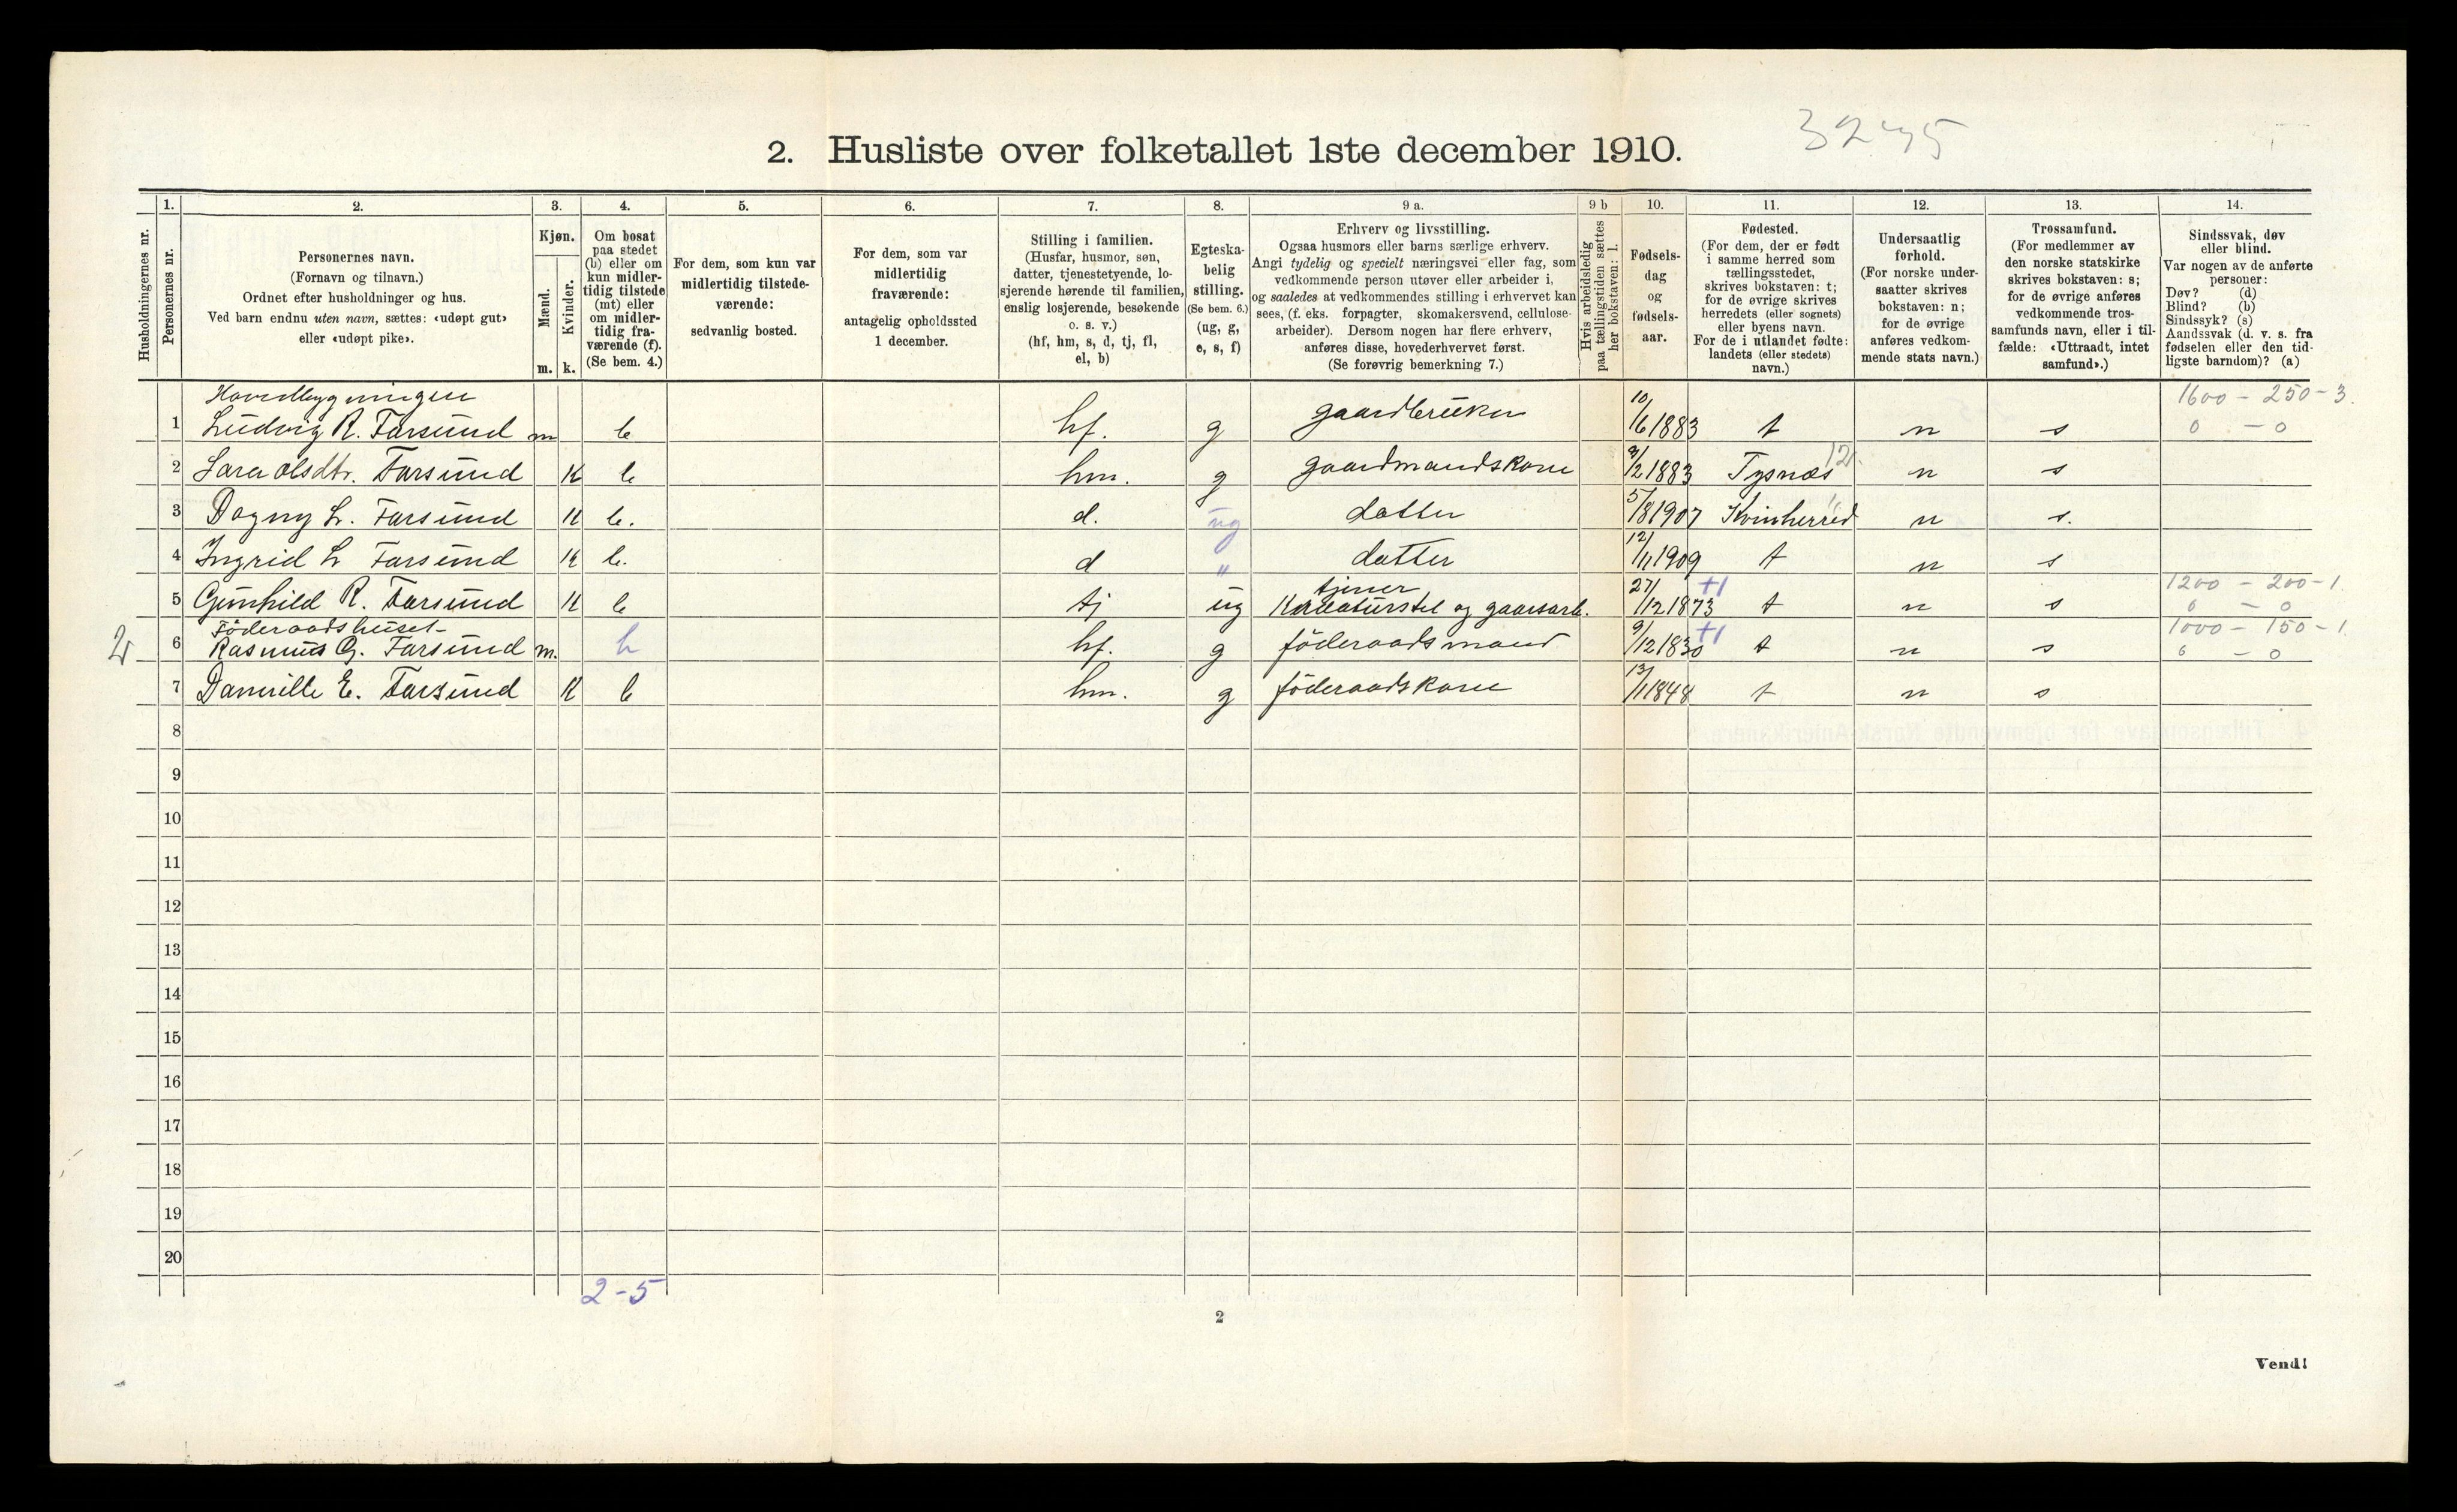 3245
2. Husliste over folketallet 1ste december 1910.
Husholdningernes nr.
1. Personernes nr.
2. Personernes navn.
(Fornavn og tilnavn.)
Ordnet efter husholdninger og hus.
Ved barn endnu uten navn, sættes: «udøpt gut»
eller «udøpt pike».
3. Kjøn.
Mænd. m.
Kvinder. k.
4. Om bosat
paa stedet
(b) eller om
kun midler-
tidig tilstede
(mt) eller
om midler-
tidig fra-
værende (f).
(Se bem. 4.)
5. For dem, som kun var
midlertidig tilstede-
værende:
sedvanlig bosted.
6. For dem, som var
midlertidig
fraværende:
antagelig opholdssted
1 december.
7. Stilling i familien.
(Husfar, husmor, søn,
datter, tjenestetyende, lo-
sjerende hørende til familien,
enslig losjerende, besøkende
o. s. v.)
(hf, hm, s, d, tj, fl,
el, b)
8. Egteska-
belig
stilling.
(Se bem. 6.)
(ug, g,
e, s, f)
9 a. Erhverv og livsstilling.
Ogsaa husmors eller barns særlige erhverv.
Angi tydelig og specielt næringsvei eller fag, som
vedkommende person utøver eller arbeider i,
og saaledes at vedkommendes stilling i erhvervet kan
sees, (f. eks. forpagter, skomakersvend, cellulose-
arbeider). Dersom nogen har flere erhverv,
anføres disse, hovederhvervet først.
(Se forøvrig bemerkning 7.)
9 b Hvis arbeidsledig
paa tællingstiden sættes
her bokstaven: l.
10. Fødsels-
dag
og
fødsels-
aar.
11. Fødested.
(For dem, der er født
i samme herred som
tællingsstedet,
skrives bokstaven: t;
for de øvrige skrives
herredets (eller sognets)
eller byens navn.
For de i utlandet fødte:
landets (eller stedets)
navn.)
12. Undersaatlig
forhold.
(For norske under-
saatter skrives
bokstaven: n;
for de øvrige
anføres vedkom-
mende stats navn.)
13. Trossamfund.
(For medlemmer av
den norske statskirke
skrives bokstaven: s;
for de øvrige anføres
vedkommende tros-
samfunds navn, eller i til-
fælde: «Uttraadt, intet
samfund».)
14. Sindssvak, døv
eller blind.
Var nogen av de anførte
personer:
Døv? (d)
Blind? (b)
Sindssyk? (s)
Aandssvak (d. v. s. fra
fødselen eller den tid-
ligste barndom)? (a)
Hovedbygningen 1600 - 250 - 3.
1 Ludvig R. Farsund m b hf. g gaardbruker 10/6 1883 t n s 0 - 0
2 Sara Olsdtr. Farsund K b hm. g gaardmandskone 3/2 1883 Tysnæs 12 n s
3 Dagny L. Farsund K b. d. ug datter 5/8 1907 Kvinherred n s.
4 Ingrid L Farsund K b. d " datter 12/11 1909 t n s
tjener 1200 - 200 - 1.
5 Gunhild R. Farsund K b tj ug Kreaturstel og gaarsarb. 27/12 1873 t n s 0 - 0
Föderaadshuset 1000 - 150 - 1.
2 6 Rasmus G. Farsund m. b hf. g föderaadsmand 9/12 1830 t n s 0 - 0
7 Damille E. Farsund K b hm. g föderaadskone 13/1 1848 t n s
8
9
10
11
12
13
14
15
16
17
18
19
20
2-5
2
Vend!